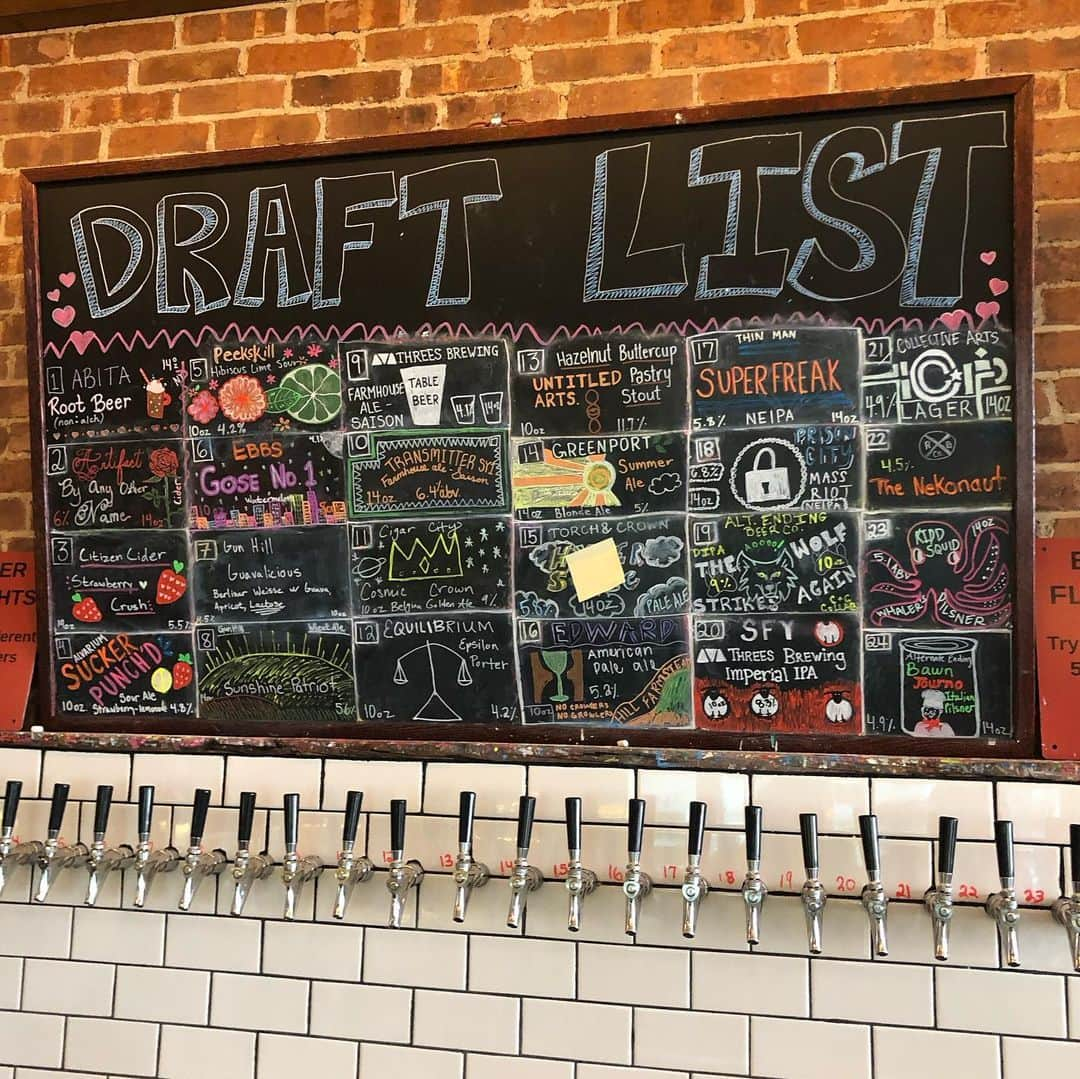 DRAFT LIST
1 ABITA
14oz
Root Beer
(non-alch)
2 Artifact
By Any Other
Name
Cider
6% 14oz
3 Citizen Cider
Strawberry
Crush
5.5%
4 ALVARIUM
SUCKER
PUNCH'D
Sour Ale
Strawberry-lemonade
10oz 4.8%
5 Peekskill
Hibiscus Lime Sour
10oz 4.2%
6 EBBS
GOSE No. 1
Watermelon
7 Gun Hill
Guavalicious
Berliner Weisse w/ Guava,
Apricot, Lactose
10oz
8 Gun Hill Wheat Ale
Sunshine Patriot
5%
9 THREES BREWING
FARMHOUSE
ALE -
SAISON
TABLE
BEER
4.1% 14oz
10
TRANSMITTER SY7
Farmhouse ale - Saison
14oz 6.4% abv.
11 Cigar City
Cosmic Crown
10oz Belgian Golden Ale 9%
12 EQUILIBRIUM
Epsilon
Porter
10oz 4.2%
13 Hazelnut Buttercup
UNTITLED
ARTS.
Pastry
Stout
10oz 11.7%
14 GREENPORT
Summer
Ale
14oz Blonde Ale 5%
15 TORCH & CROWN
5.8% 14oz PALE ALE
16 EDWARD
American
pale ale
5.2%
10oz NO CROWLERS
NO GROWLERS
HILL FARMSTEAD
17 THIN MAN
SUPERFREAK
5.8% NEIPA 14oz
18 PRISON
CITY
6.8%
MASS
RIOT
14oz
(NEIPA)
19 ALT. ENDING
BEER CO.
DIPA
9%
THE WOLF
10oz
STRIKES AGAIN
20 SFY
THREES BREWING
Imperial IPA
21 COLLECTIVE ARTS
4.9% LAGER 14oz
22
4.5%
The Nekonaut
23
14oz
KIDD
SQUID
5.1% ABV
WHALER'S PILSNER
24
Alternate Ending
Bawn
Journo
Italian
Pilsner
4.9% 14oz
12 13 14 15 16 17 18 19 20 21 22 23